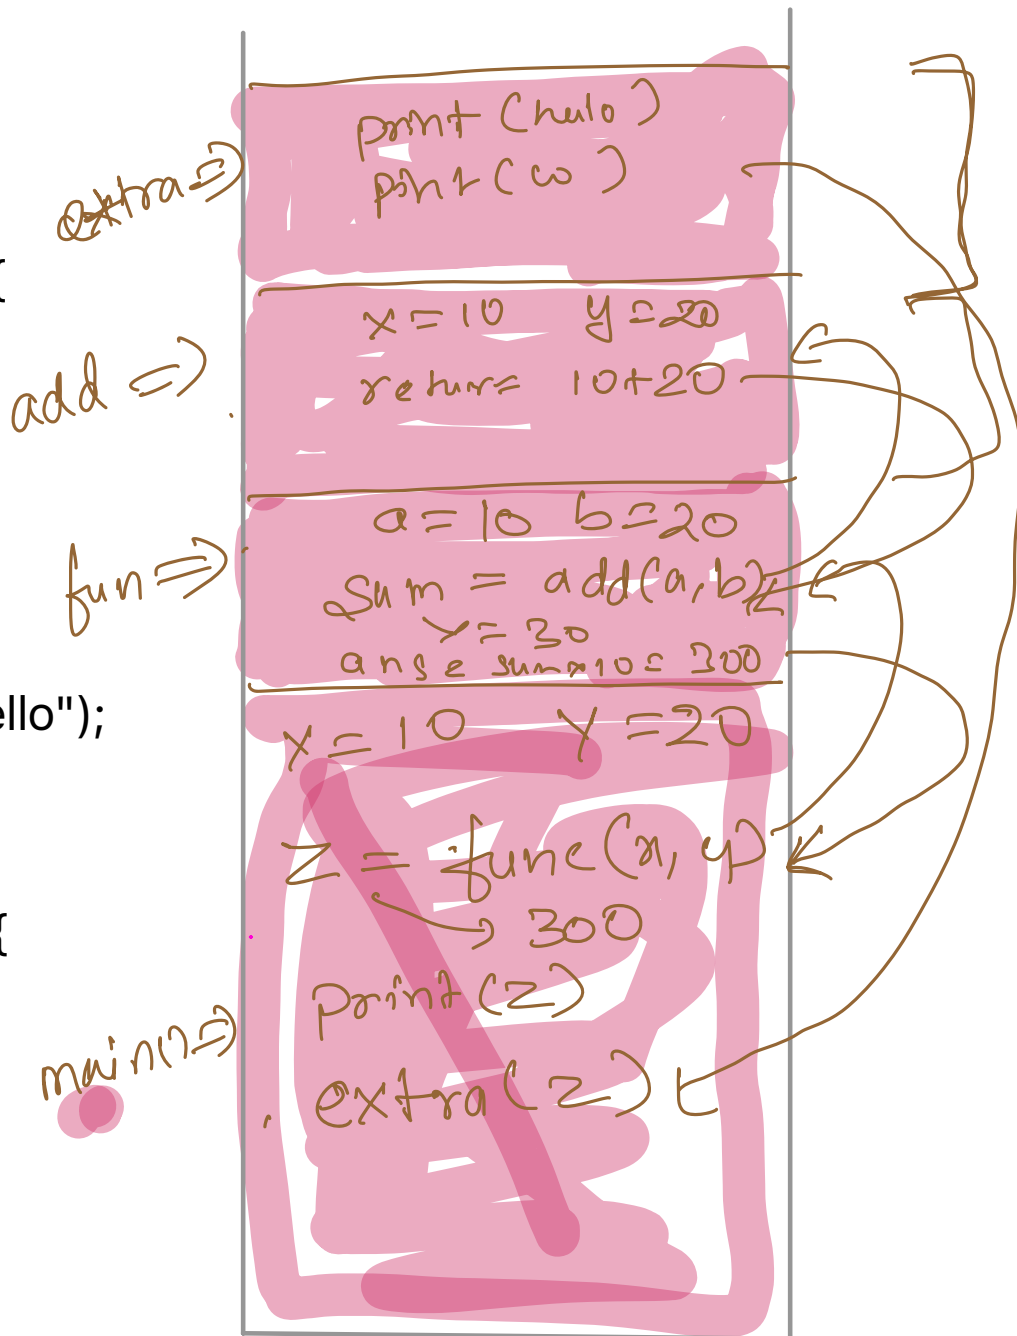 print (hulo)
print (w)
extra=>
{
x=10 y=20
return= 10+20
add =>
a=10 b=20
fun=>
Sum = add(a,b)
Y=30
ans = sum×10= 300
ello");
x=10 Y=20
Z = func(x, y)
→ 300
{
print(z)
main()=>
extra(z)